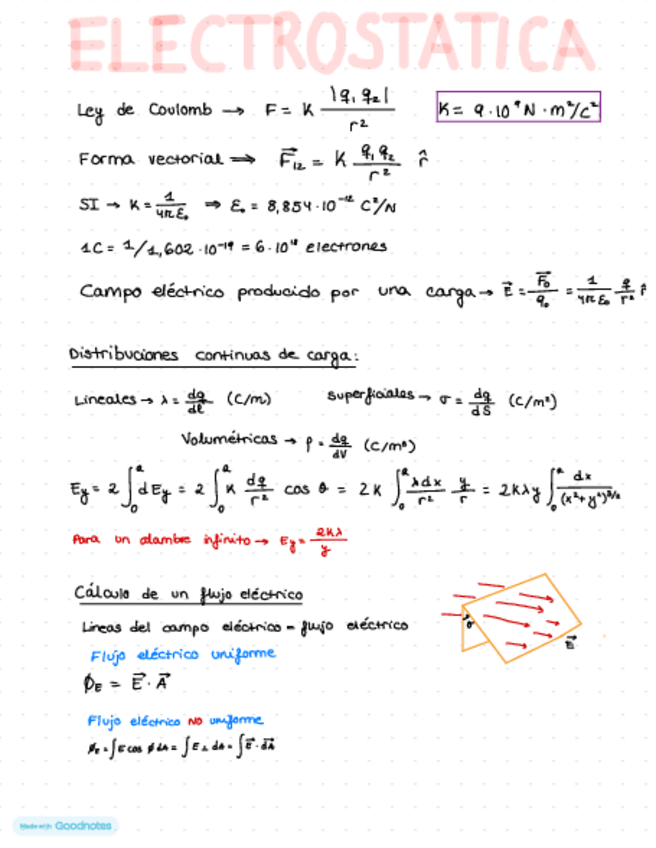 ELECTROSTATICA
Ley de Coulomb → F = K |q₁ q₂| / r²   K = 9·10⁹ N·m²/C²
Forma vectorial ⇒ F⃗₁₂ = K q₁ q₂ / r² r̂
SI → K = 1/4πε₀ ⇒ ε₀ = 8,854·10⁻¹² C²/N
1C = 1/1,602·10⁻¹⁹ = 6·10¹⁸ electrones
Campo eléctrico producido por una carga → E⃗ = F⃗₀/q₀ = 1/4πε₀ q/r² r̂
Distribuciones continuas de carga:
Lineales → λ = dq/dℓ (C/m)   Superficiales → σ = dq/dS (C/m²)
Volumétricas → ρ = dq/dV (C/m³)
Ey = 2 ∫₀ᵃ dEy = 2 ∫₀ᵃ K dq/r² cos θ = 2K ∫₀ᵃ λdx/r² y/r = 2Kλy ∫₀ᵃ dx/(x²+y²)³/²
Para un alambre infinito → Ey = 2Kλ/y
Cálculo de un flujo eléctrico
Líneas del campo eléctrico = flujo eléctrico
θ
E⃗
Flujo eléctrico uniforme
ϕE = E⃗ · A⃗
Flujo eléctrico NO uniforme
ϕE = ∫E cos ϕ dA = ∫E⊥ dA = ∫E⃗·dA⃗
Made with Goodnotes